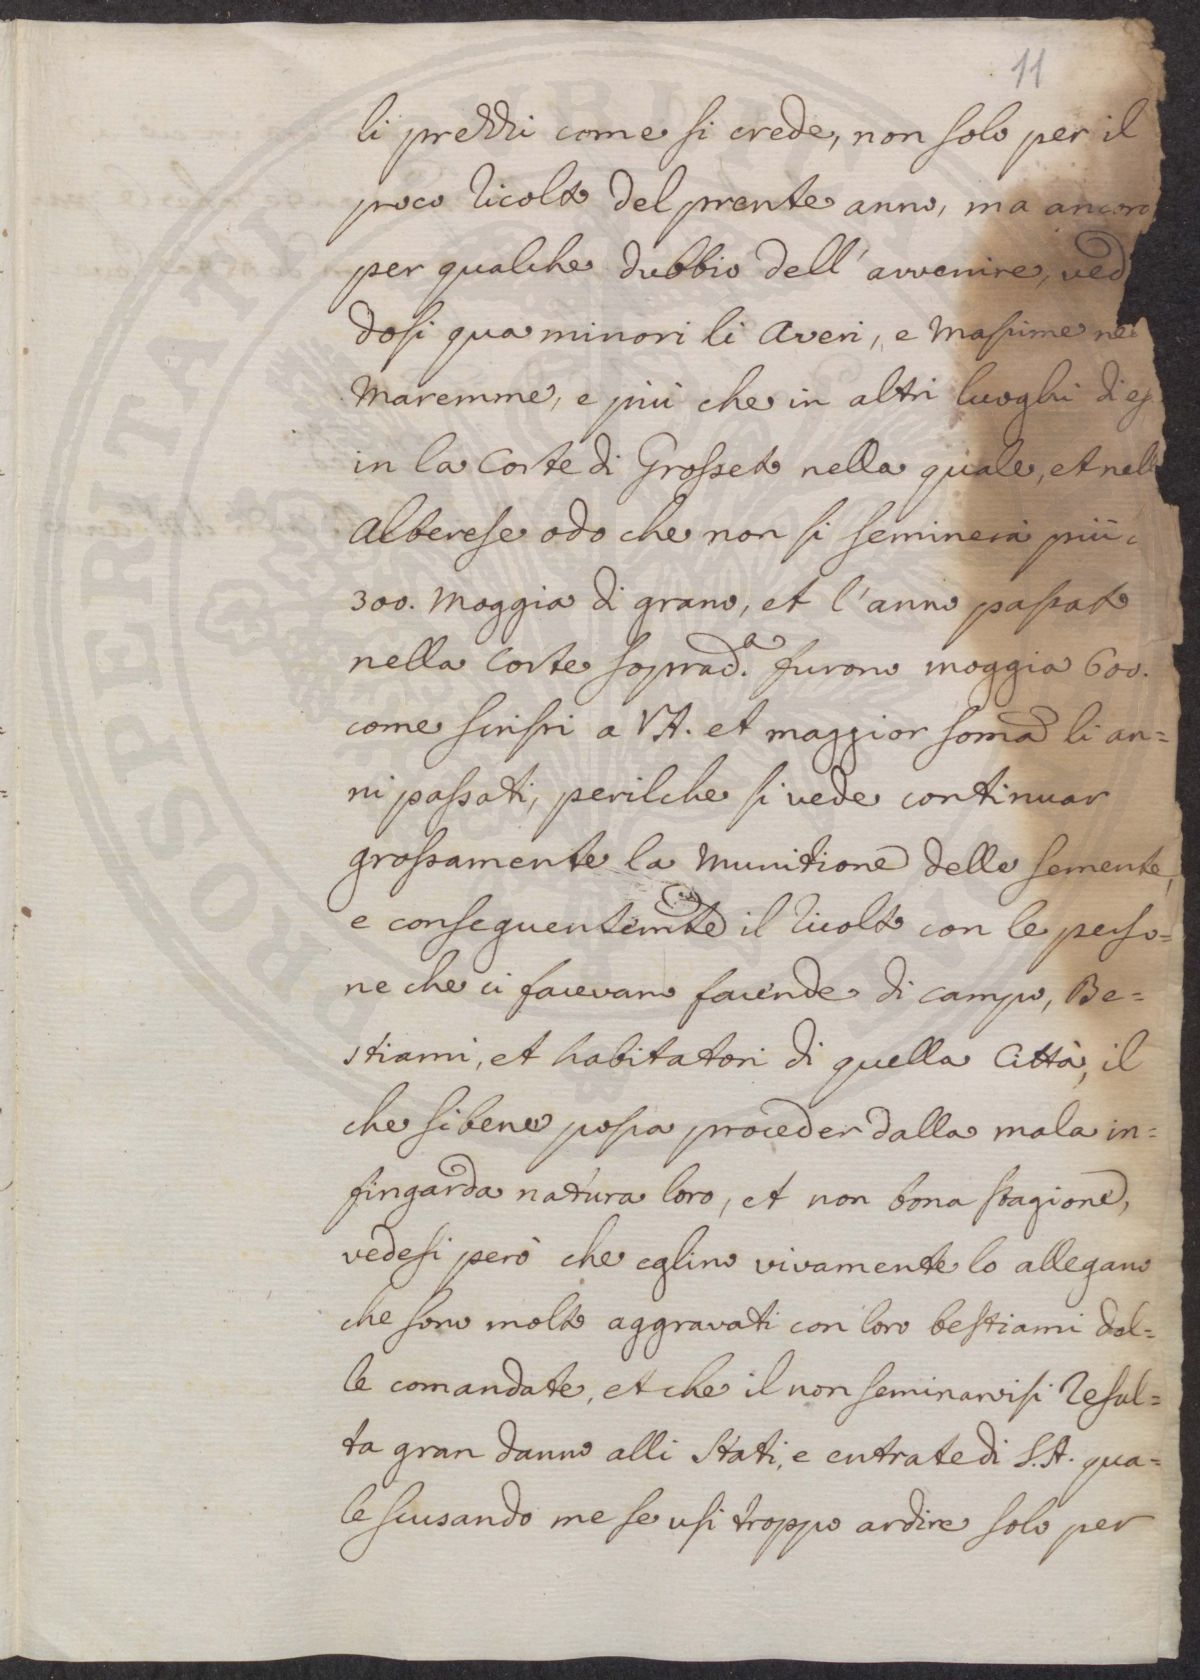 11
li prezzi come si crede, non solo per il
poco ricolto del prente anno, ma ancora
per qualche dubbio dell'avvenire, ved
dosi qua minori li Averi, e Massime ne
Maremme, e più che in altri luoghi di
in la Corte di Grosseto nella quale, et nell
Alberese odo che non si seminerà più
300. Moggia di grano, et l'anno passato
nella Corte soprad.a furono moggia 600.
come scrissi a V.A. et maggior soma li an=
ni passati, perilche si vede continuar
grossamente la Munitione delle semente,
e conseguentemte il ricolto con le perso=
ne che ci facevano facende di campo, Be=
stiami, et habitatori di quella Città, il
che sibene possa proceder dalla mala in=
fingarda natura loro, et non bona stagione,
vedesi però che eglino vivamente lo allegano
che sono molto aggravati con loro bestiami dal=
le comandate, et che il non seminarvisi resul=
ta gran danno alli Stati, e entrate di S.A. qua=
le scusando me se usi troppo ardire solo per
PROSPERITATI PUBLICAE